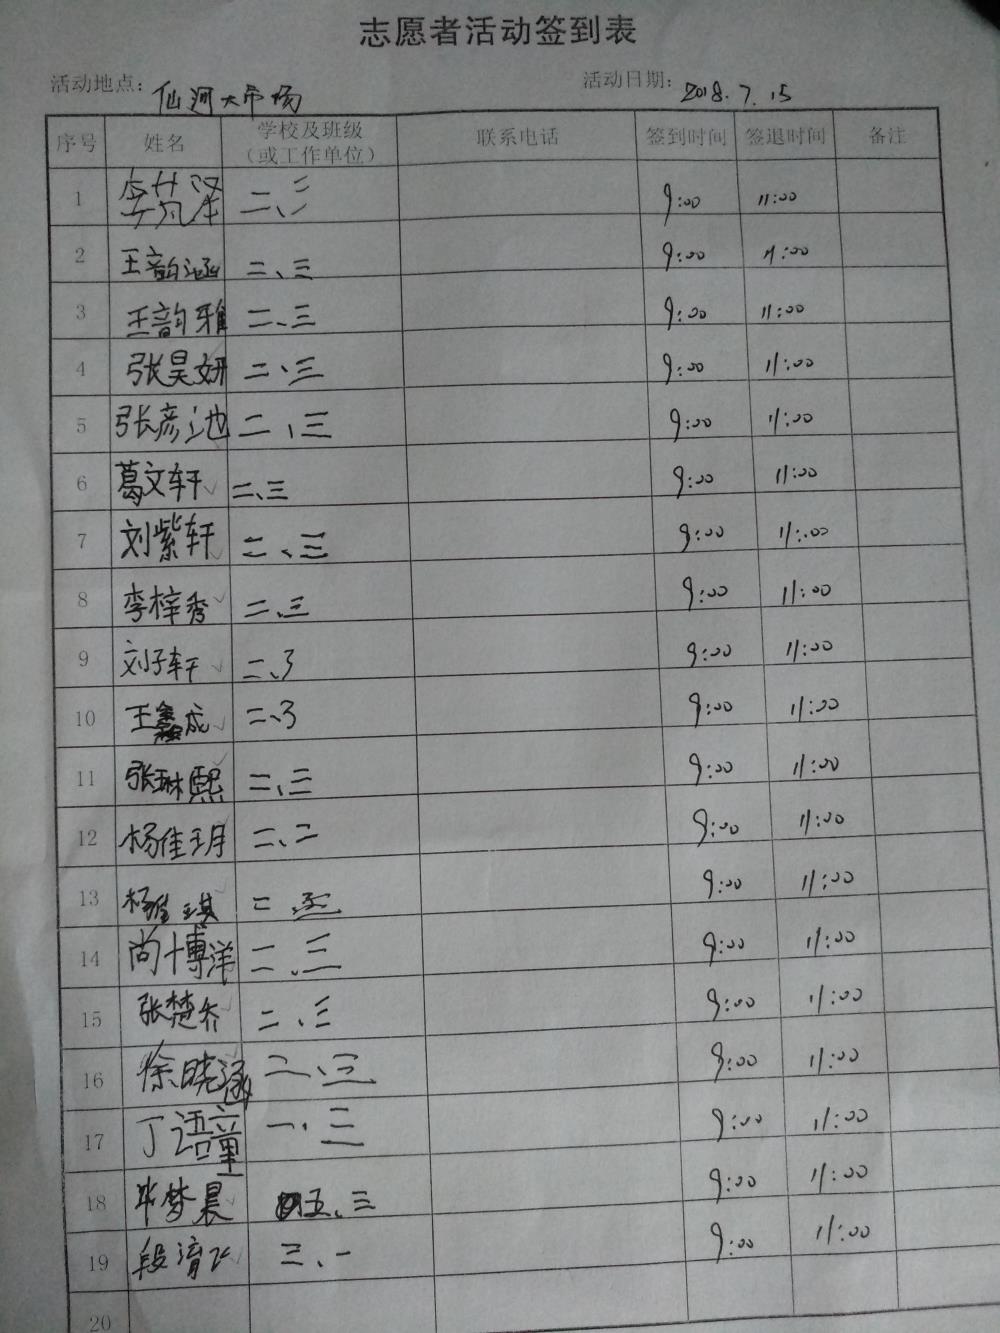 志愿者活动签到表
活动地点： 仙河大市场 活动日期： 2018.7.15
序号 姓名 学校及班级（或工作单位） 联系电话 签到时间 签退时间 备注
1 李 泽 二、三 9:00 11:00
2 王韵涵 二、三 9:00 11:00
3 王韵雅 二、三 9:00 11:00
4 张昊妍 二、三 9:00 11:00
5 张彦池 二、三 9:00 11:00
6 葛文轩 二、三 9:00 11:00
7 刘紫轩 二、三 9:00 11:00
8 李梓秀 二、三 9:00 11:00
9 刘子轩 二、3 9:00 11:00
10 王鑫成 二、3 9:00 11:00
11 张琳熙 二、三 9:00 11:00
12 杨佳玥 二、二 9:00 11:00
13 杨佳琪 二、 9:00 11:00
14 尚博洋 二、三 9:00 11:00
15 张楚乔 二、三 9:00 11:00
16 徐晓涵 二、三 9:00 11:00
17 丁语童 一、三 9:00 11:00
18 毕梦晨 五、三 9:00 11:00
19 段清 三、一 9:00 11:00
20